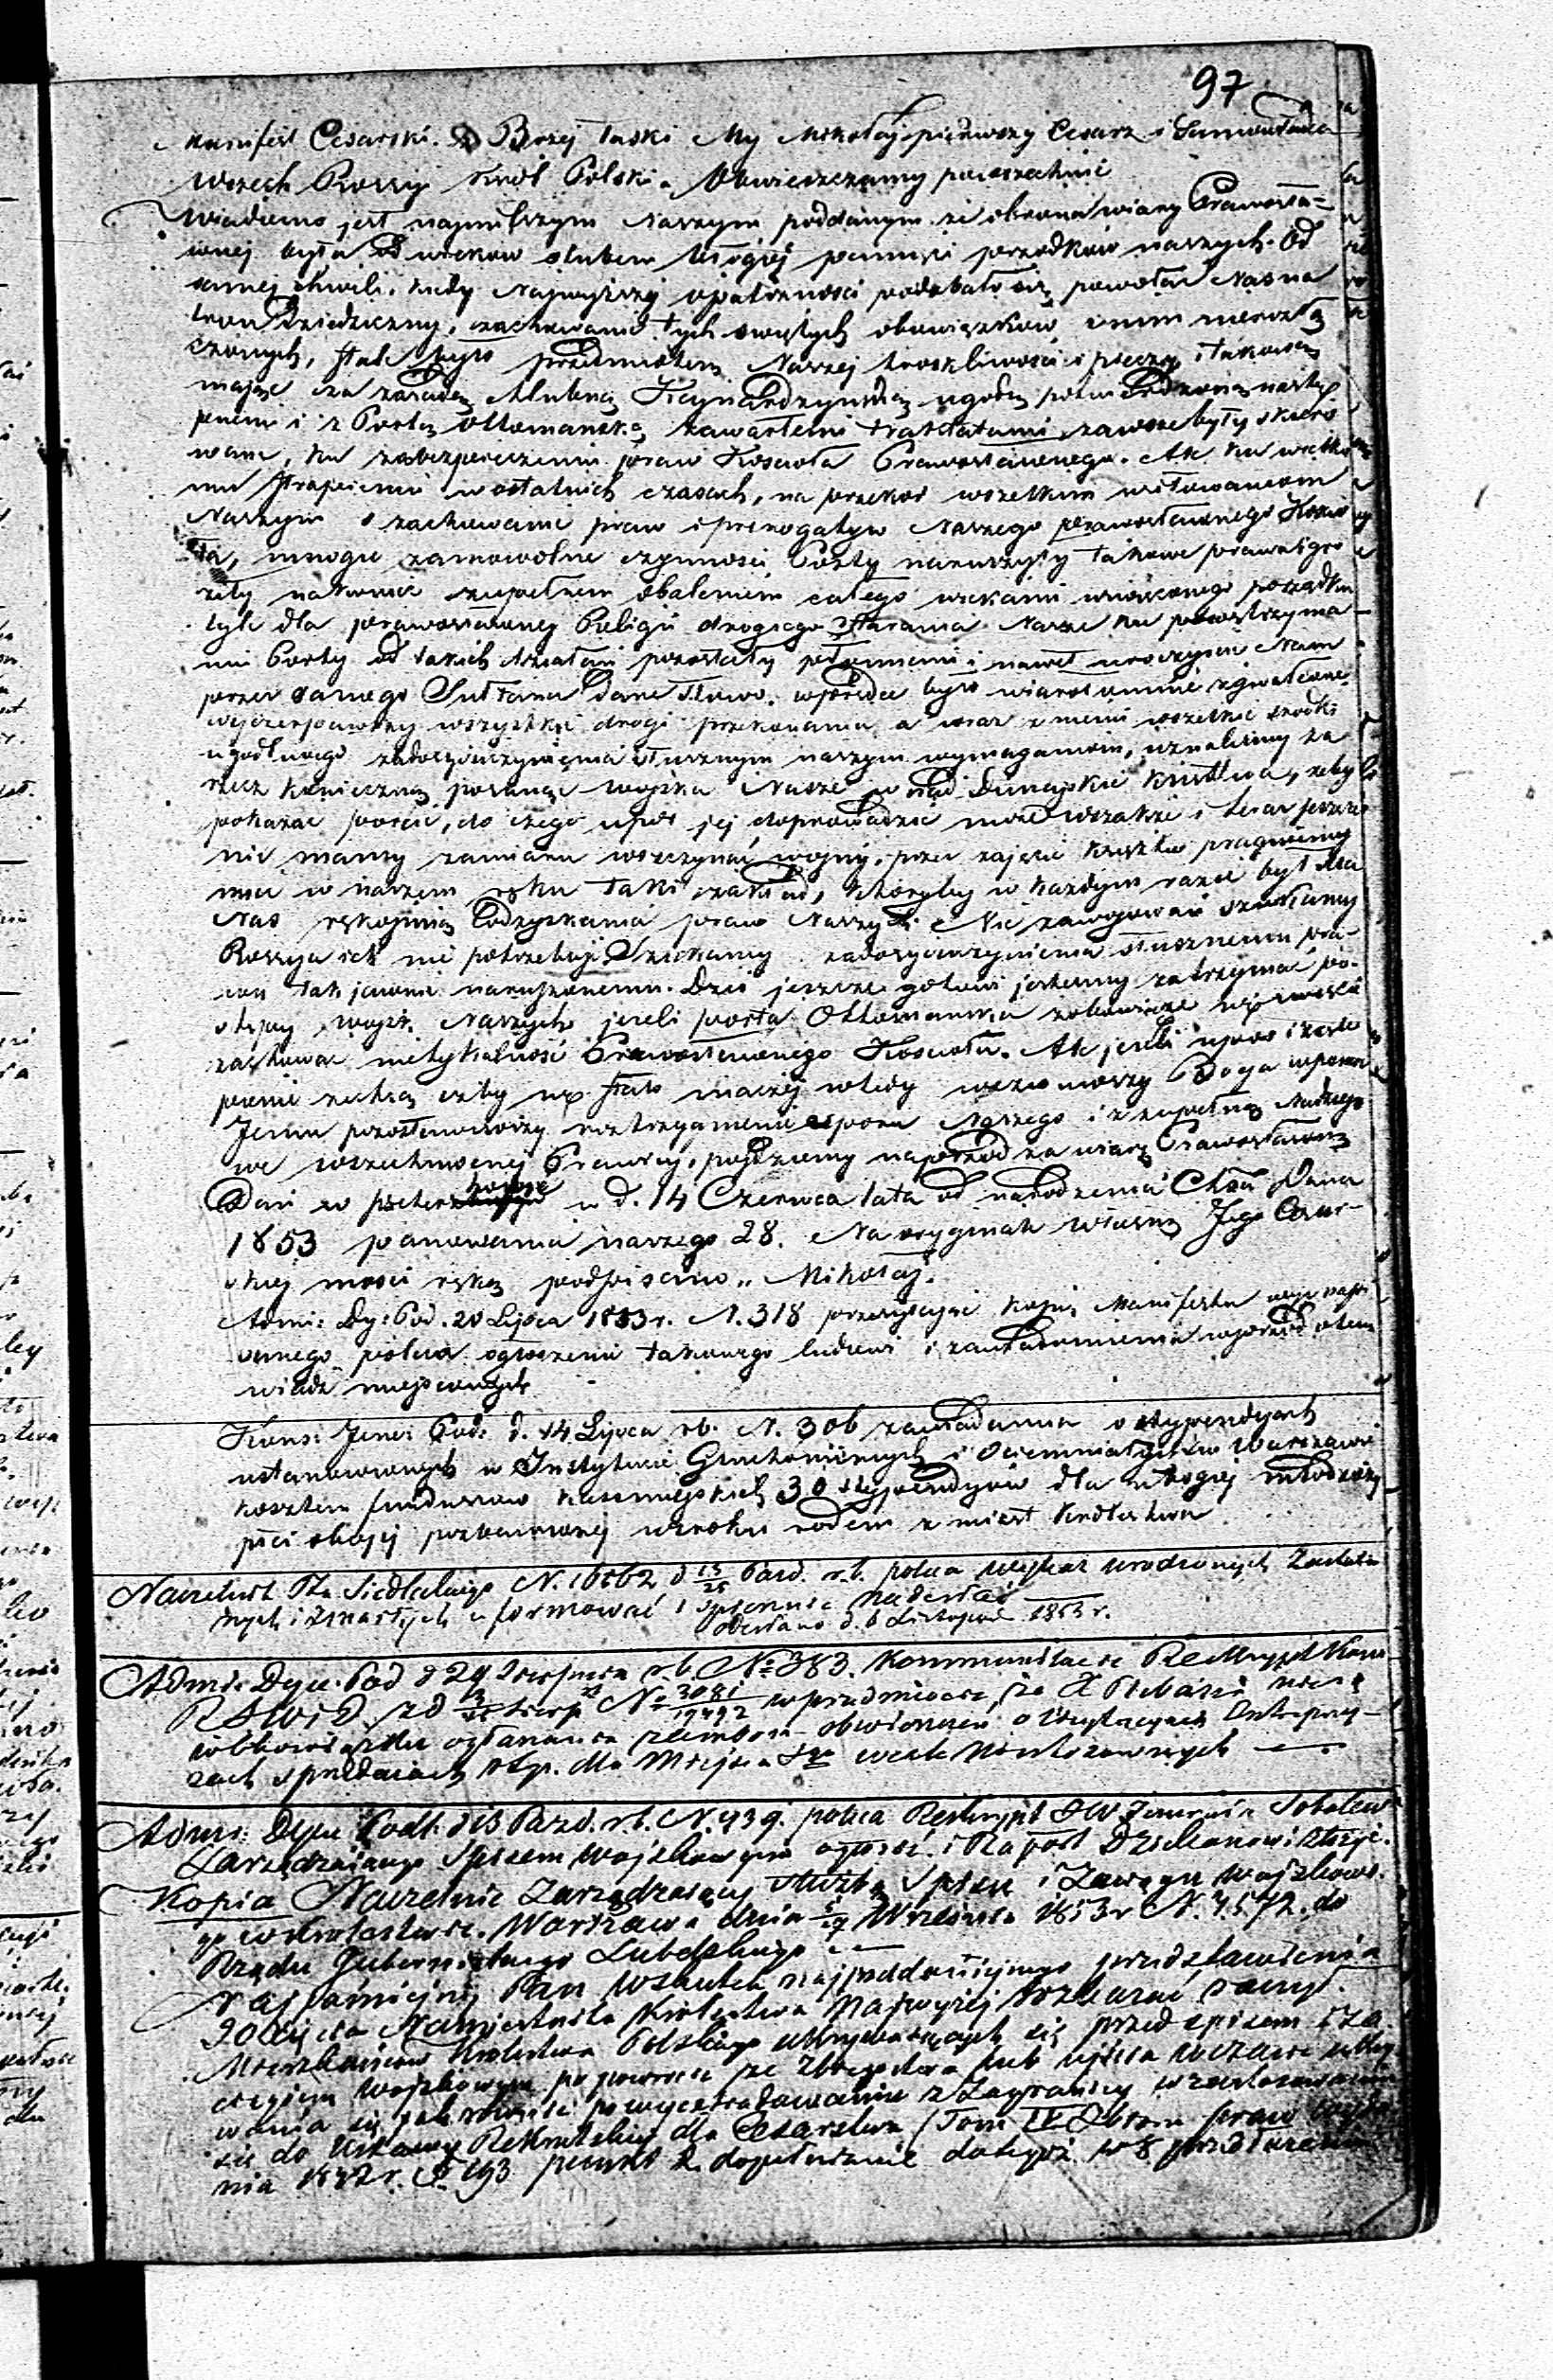 97
Manifest Cesarski. Z Bożej łaski My Mikołaj pierwszy Cesarz i Samowładca
Wszech Rossyi Król Polski. Obwieszczamy powszechnie
Wiadomo jest najmilszym Naszym poddanym że obrona wiary Prawosła=
wnej była od wieków ślubem błogiej pamięci przodków naszych. Od
samej chwili, kiedy Najwyższej opatrzności podobało się powołać Nas na
tron dziedziczny, zachowanie tych świętych obowiązków z nim nierozłą
czonych, stale było przedmiotem Naszej troskliwości i pieczy i takowe
mając za zasadę słubną Kaynardzyńską ugodę potwierdzoną nastę
pnemi i z Portą Ottomańską zawartemi traktatami zawsze były skiero
wane, ku zabezpieczeniu praw Kościoła Prawosławnego. Ale ku wielkie
mu strapieniu w ostatnich czasach, na przekór wszelkim usiłowaniom
Naszym o zachowanie praw i prerogatyw Naszego prawosławnego Kościo
ła, mnogie samowolne czynności Porty naruszyły takowe prawa i gro
ziły nakoniec zupełnem obaleniem całego wiekami uświęconego porządku
tyle dla prawosławnej Religii drogiego. Starania Nasze ku powstrzyma
niu Porty od takich działań pozostały płonnemi i nawet uroczyście Nam
przez samego Sułtana dane słowo, wprędce było wiarołomnie zgwałcone.
wyczerpawszy wszystkie drogi przekonania a wraz z niemi wszelkie środki
ugodnego zadosyćuczynienia słusznym naszym wymaganiom, uznaliśmy za
rzecz konieczną posunąć wojska Nasze w nad Dunajskie Księstwa, żeby
pokazać Porcie, do czego upór jej doprowadzić może wszakże i teraz jeszcze
nie mamy zamiaru wszczynać wojny. przez zajęcie Księstw pragniemy
mieć w naszem ręku taki zakład, któryby w każdym razie był dla
Nas rękojmią odzyskania praw Naszych. Nie zawojowań szukamy
Rossya ich nie potrzebuje. Szukamy zadosyćuczynienia słusznemu pra-
wu tak jawnie naruszonemu. Dziś jeszcze gotowi jesteśmy zatrzymać po-
stępy wojsk Naszych jeżeli Porta Ottomańska zobowiąże się
zachować nietykalność Prawosławnego Kościoła. Ale jeżeli upór i zaśle
pienie zechcą żeby się stało inaczej wtedy wezwawszy Boga w pomoc
Jemu pozostawiwszy roztrzygnienie sporu Naszego i z zupełną nadzieją
we wszechmocnej Prawicy, pójdziemy naprzód za wiarę Prawosławną
Dan w Peterhofie w d. 14 Czerwca lata od narodzenia Chsa Pana
1853 panowania naszego 28. Na oryginale własną Jego Cesar-
skiej mości ręką podpisano „Mikołaj"
Admi: Dy: Pod. 20 Lipca 1853 r. N. 318 przesyłając kopię Manifestu wyż napi
sanego poleca ogłoszenie takowego ludowi i zawiadomienie wprzód o tem
władz miejscowych
Kons: Jene: Pod: d. 14 Lipca r.b. N. 306 zawiadamia o stypendyach
ustanowionych w Instytucie Głuchoniemych i Ociemniałych w Warszawie
kosztem funduszów kass miejskich 30 stypendyów dla ubogiej młodzieży
płci obojej pozbawionej wzroku rodem z miast Królestwa
Naczelnik Ptu Siedleckiego N. 16562 d 13/25 Paźd. r.b. poleca Wykaz urodzonych Zaślubio
nych i Zmarłych uformować i spiesznie nadesłać
odesłano d. 6 Listopada 1853 r.
Admi: Dyec: Pod d 24 Sierpnia r.b. N= 383. Kommunikacie Reskrypt Kom
R S W i D z d sierp N= 3081/19492 w przedmiocie, że XX Plebani nie są
obowiązku ogłaszania z ambon obwieszczeń o licytacyach Entrepry-
zach sprzedażach etp. dla Miejsca św.
Admi: Dyec Podl. d 13 Pazd. r.b. N. 939. poleca Reskrypt JW Jenerała Sobolew
Zarządzającego Spisem Wojskowym ogłosić i Raport Dziekanowi złożyć.
Kopia Naczelnie Zarządzający służbą Spisu i Zaciągu Wojskowe
go w Królestwie. Warszawa dnia 5/17 Września 1853 r N. 7572. do
Rządu Gubernialnego Lubelskiego
Najjaśniejszy Pan wskutek najpoddańszego przedstawienia
JO Xięcia Namiestnika Królestwa Najwyżej rozkazać raczył.
Mieszkańców Królestwa Polskiego ukrywających się przed spisem i Za
ciągiem Wojskowym po powrocie ze Zbiegostwa lub ujęcia w czasie ukry
wania się jak również po wyextradowaniu z Zagranicy w zastosowaniu
się do Ustawy Rekrutskiej dla Cesarstwa (Tom IV Zbioru praw wyda
nia 1842 r. § 493 punkt 2. dopełnienie